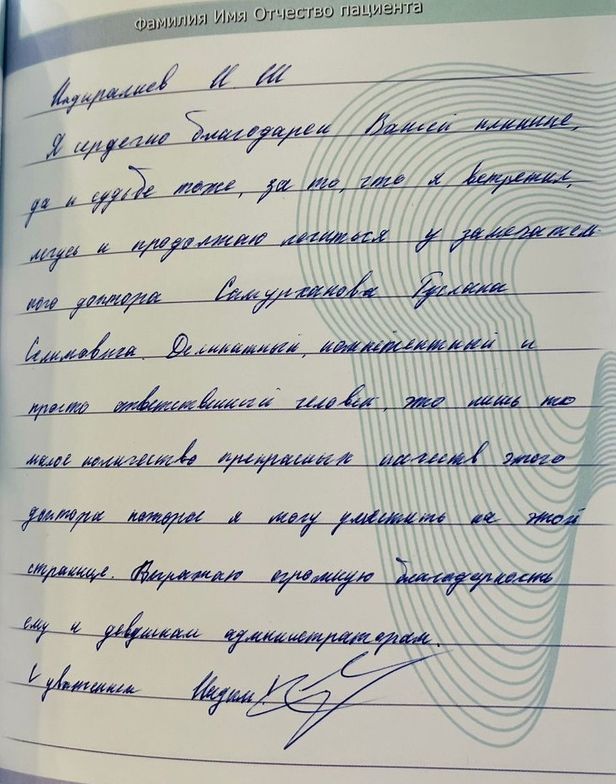 Фамилия Имя Отчество пациента
Индиралиев И Ш
Я сердечно благодарен Вашей клинике,
да и судьбе тоже, за то, что я встретил,
лечусь и продолжаю лечиться у замечатель
ного доктора Самурханова Руслана
Селимовича. Деликатный, компетентный и
просто ответственный человек, это лишь то
малое количество прекрасных качеств этого
доктора которое я могу уместить на этой
странице. Выражаю огромную благодарность
ему и девушкам администраторам.
С уважением